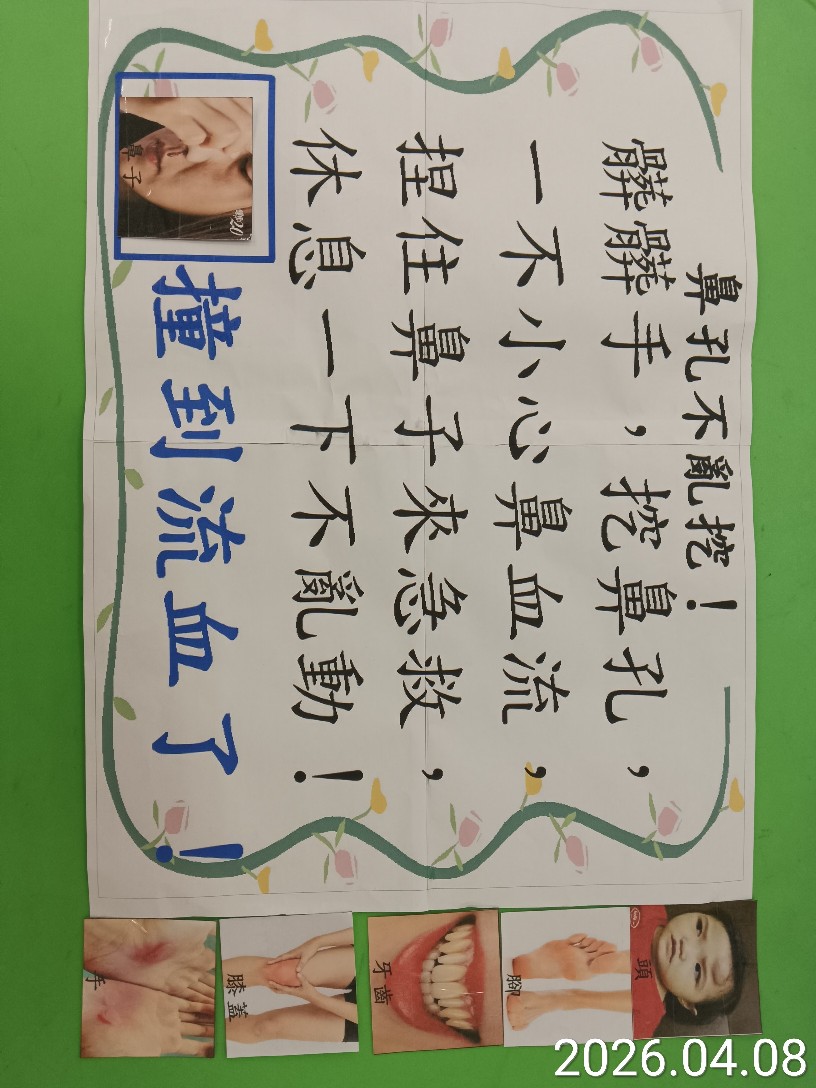 鼻孔不亂挖！
髒髒手，挖鼻孔，
一不小心鼻血流，
捏住鼻子來急救，
休息一下不亂動！
鼻子
撞到流血了！
頭
腳
牙齒
膝蓋
手
2026.04.08